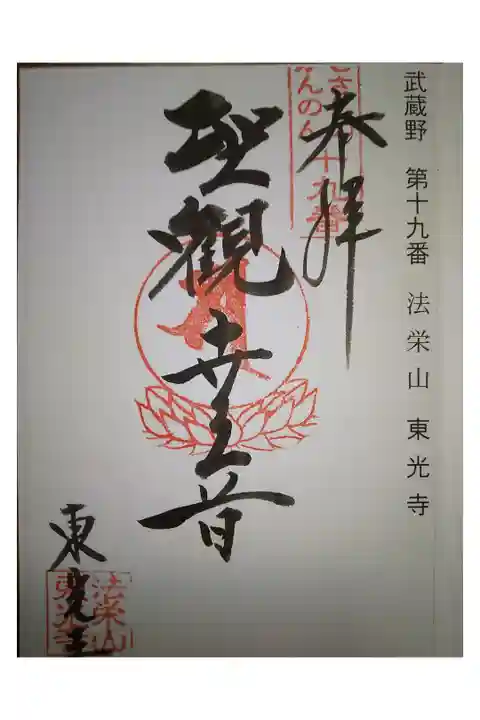 武蔵野 第十九番 法栄山 東光寺
奉拝
十九番
聖観世音
東光寺
法栄山
東光寺